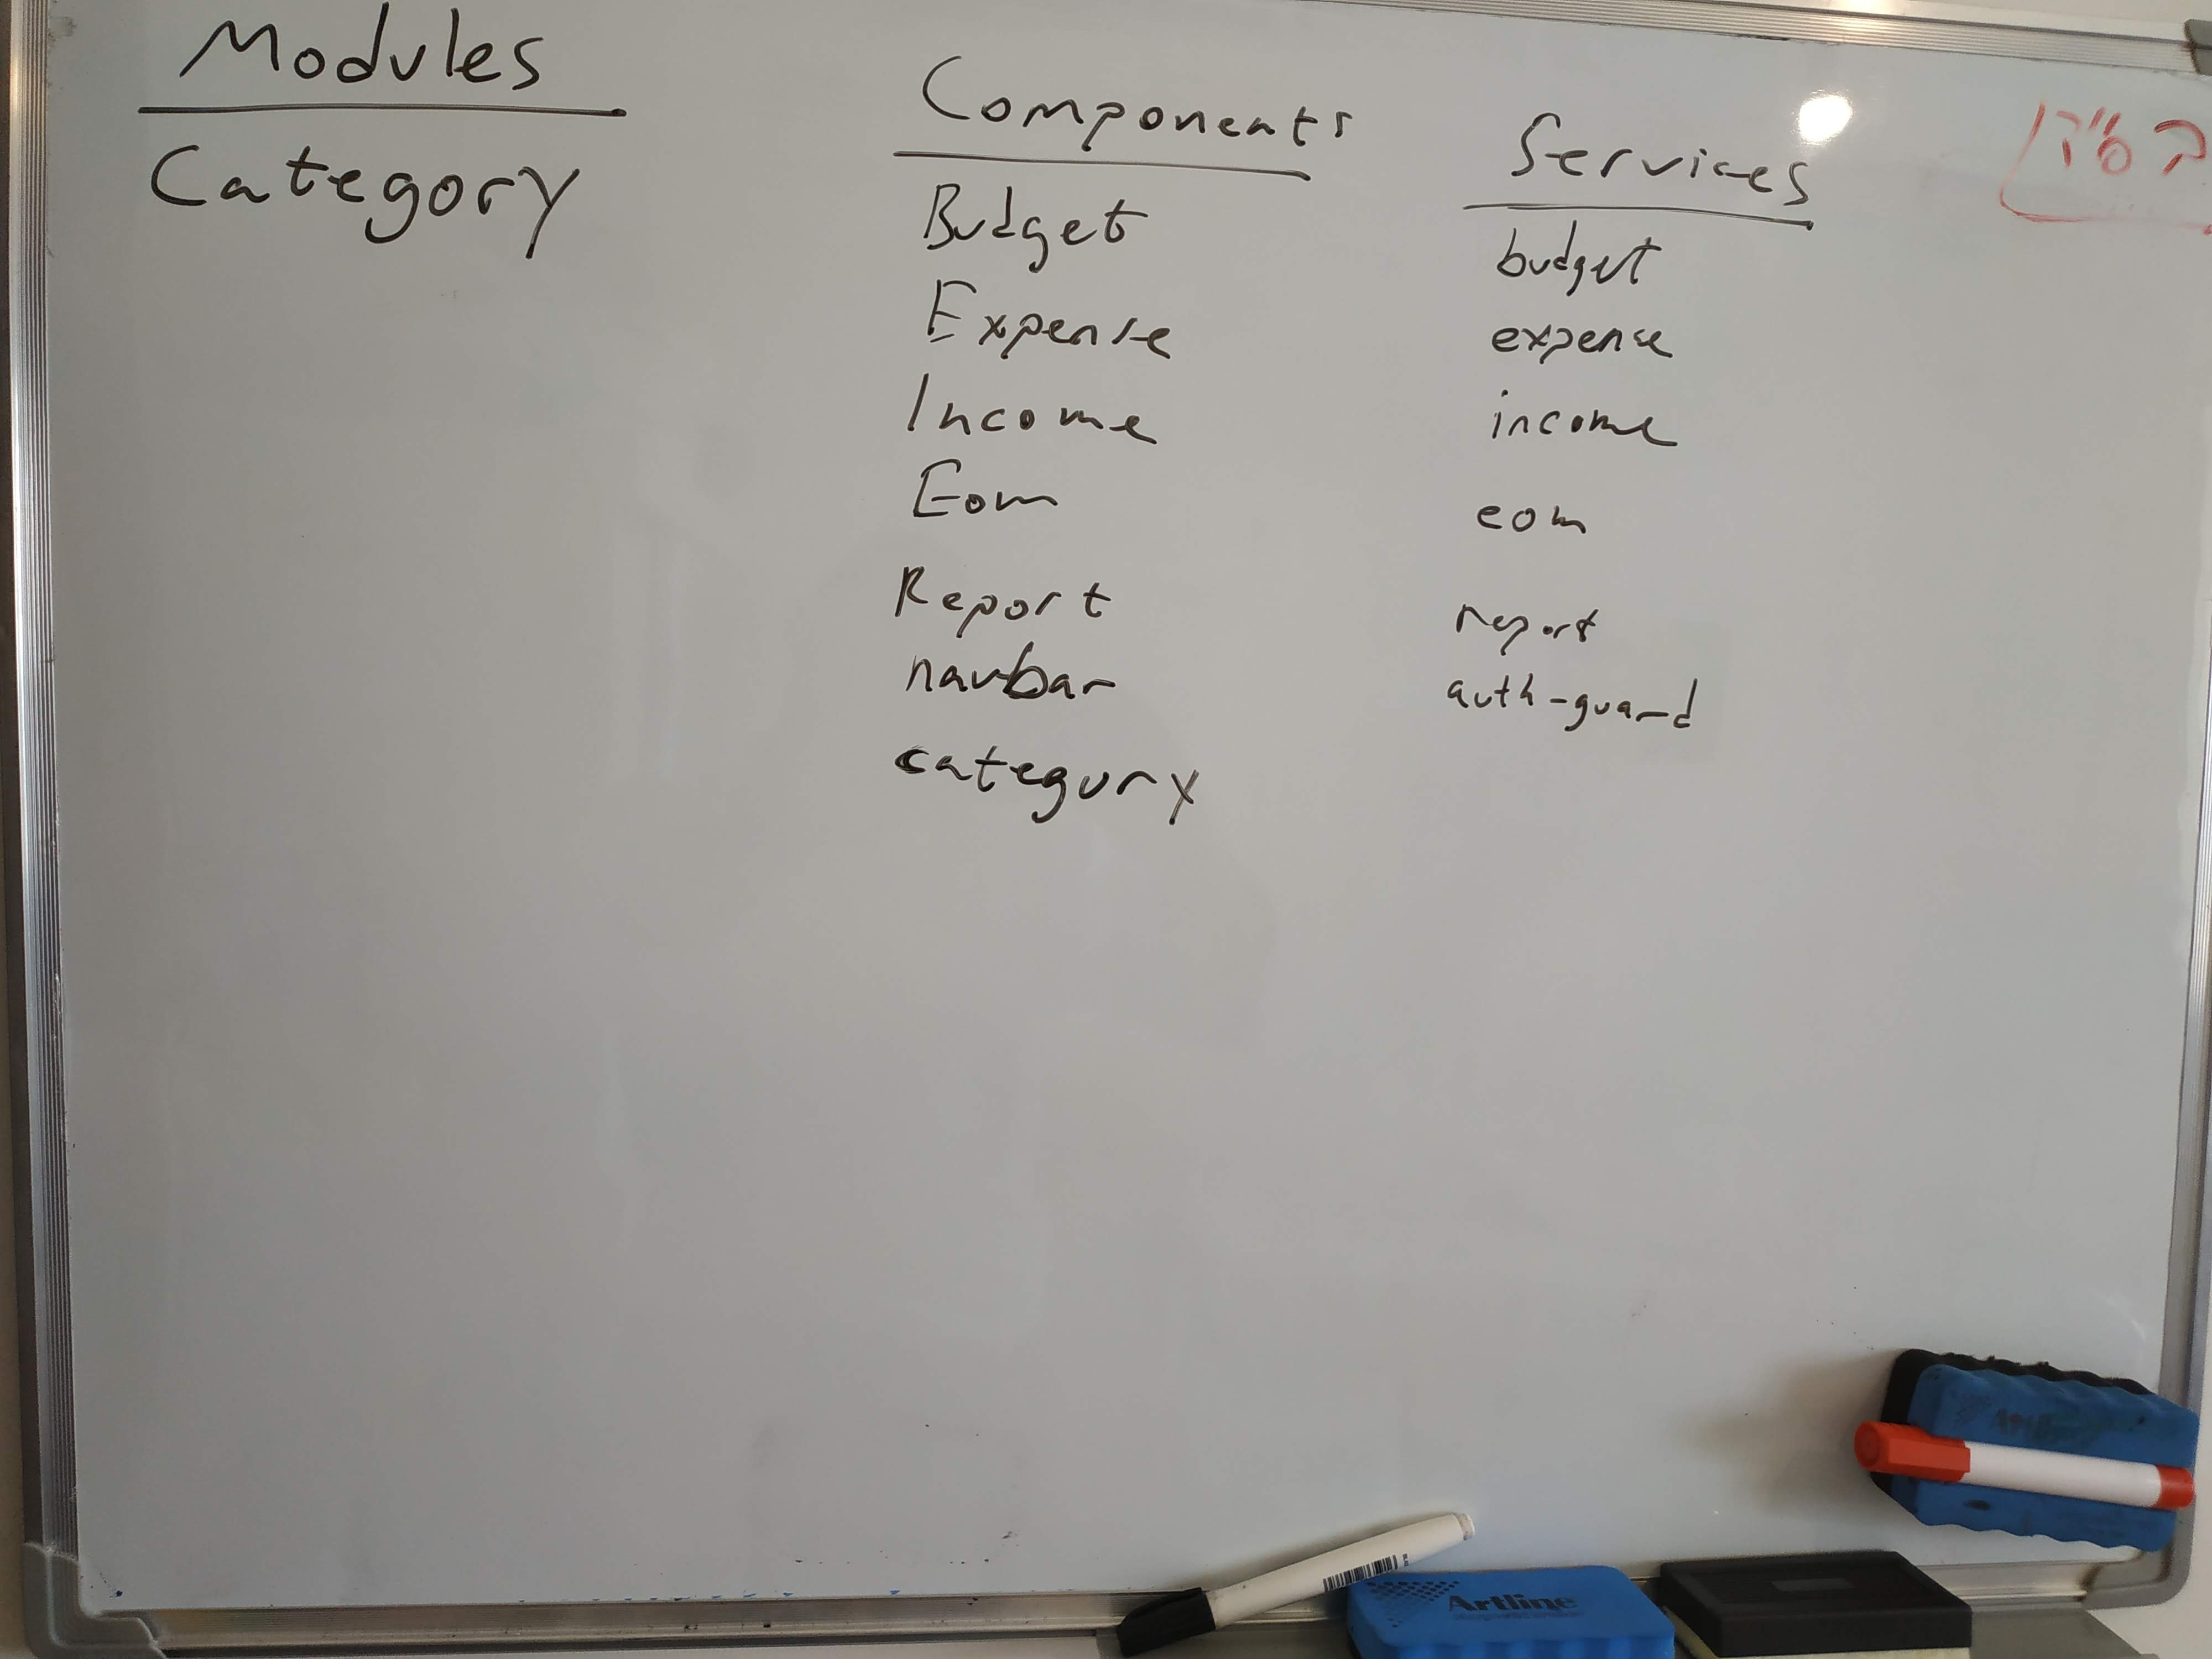 Modules
Category
Components
Budget
Expense
Income
Eom
Report
navbar
category
Services
budget
expense
income
eom
report
auth-guard
בס"ד
Artline